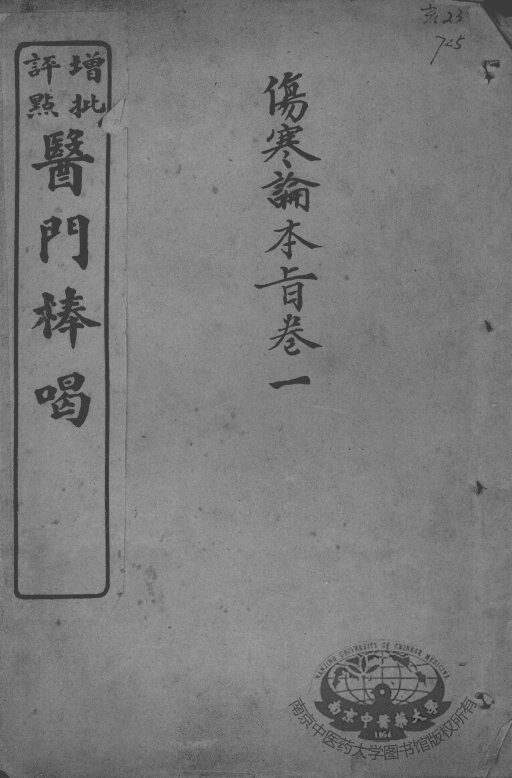 增批
評點
醫門棒喝
傷寒論本旨卷一
23
745
NANJING UNIVERSITY OF CHINESE MEDICINE
南京中醫藥大學
1954
南京中医药大学图书馆版权所有